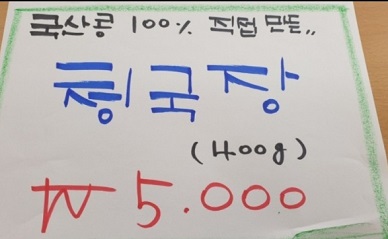 국산콩 100% 직접 만든,,
청국장
(400g)
₩ 5.000